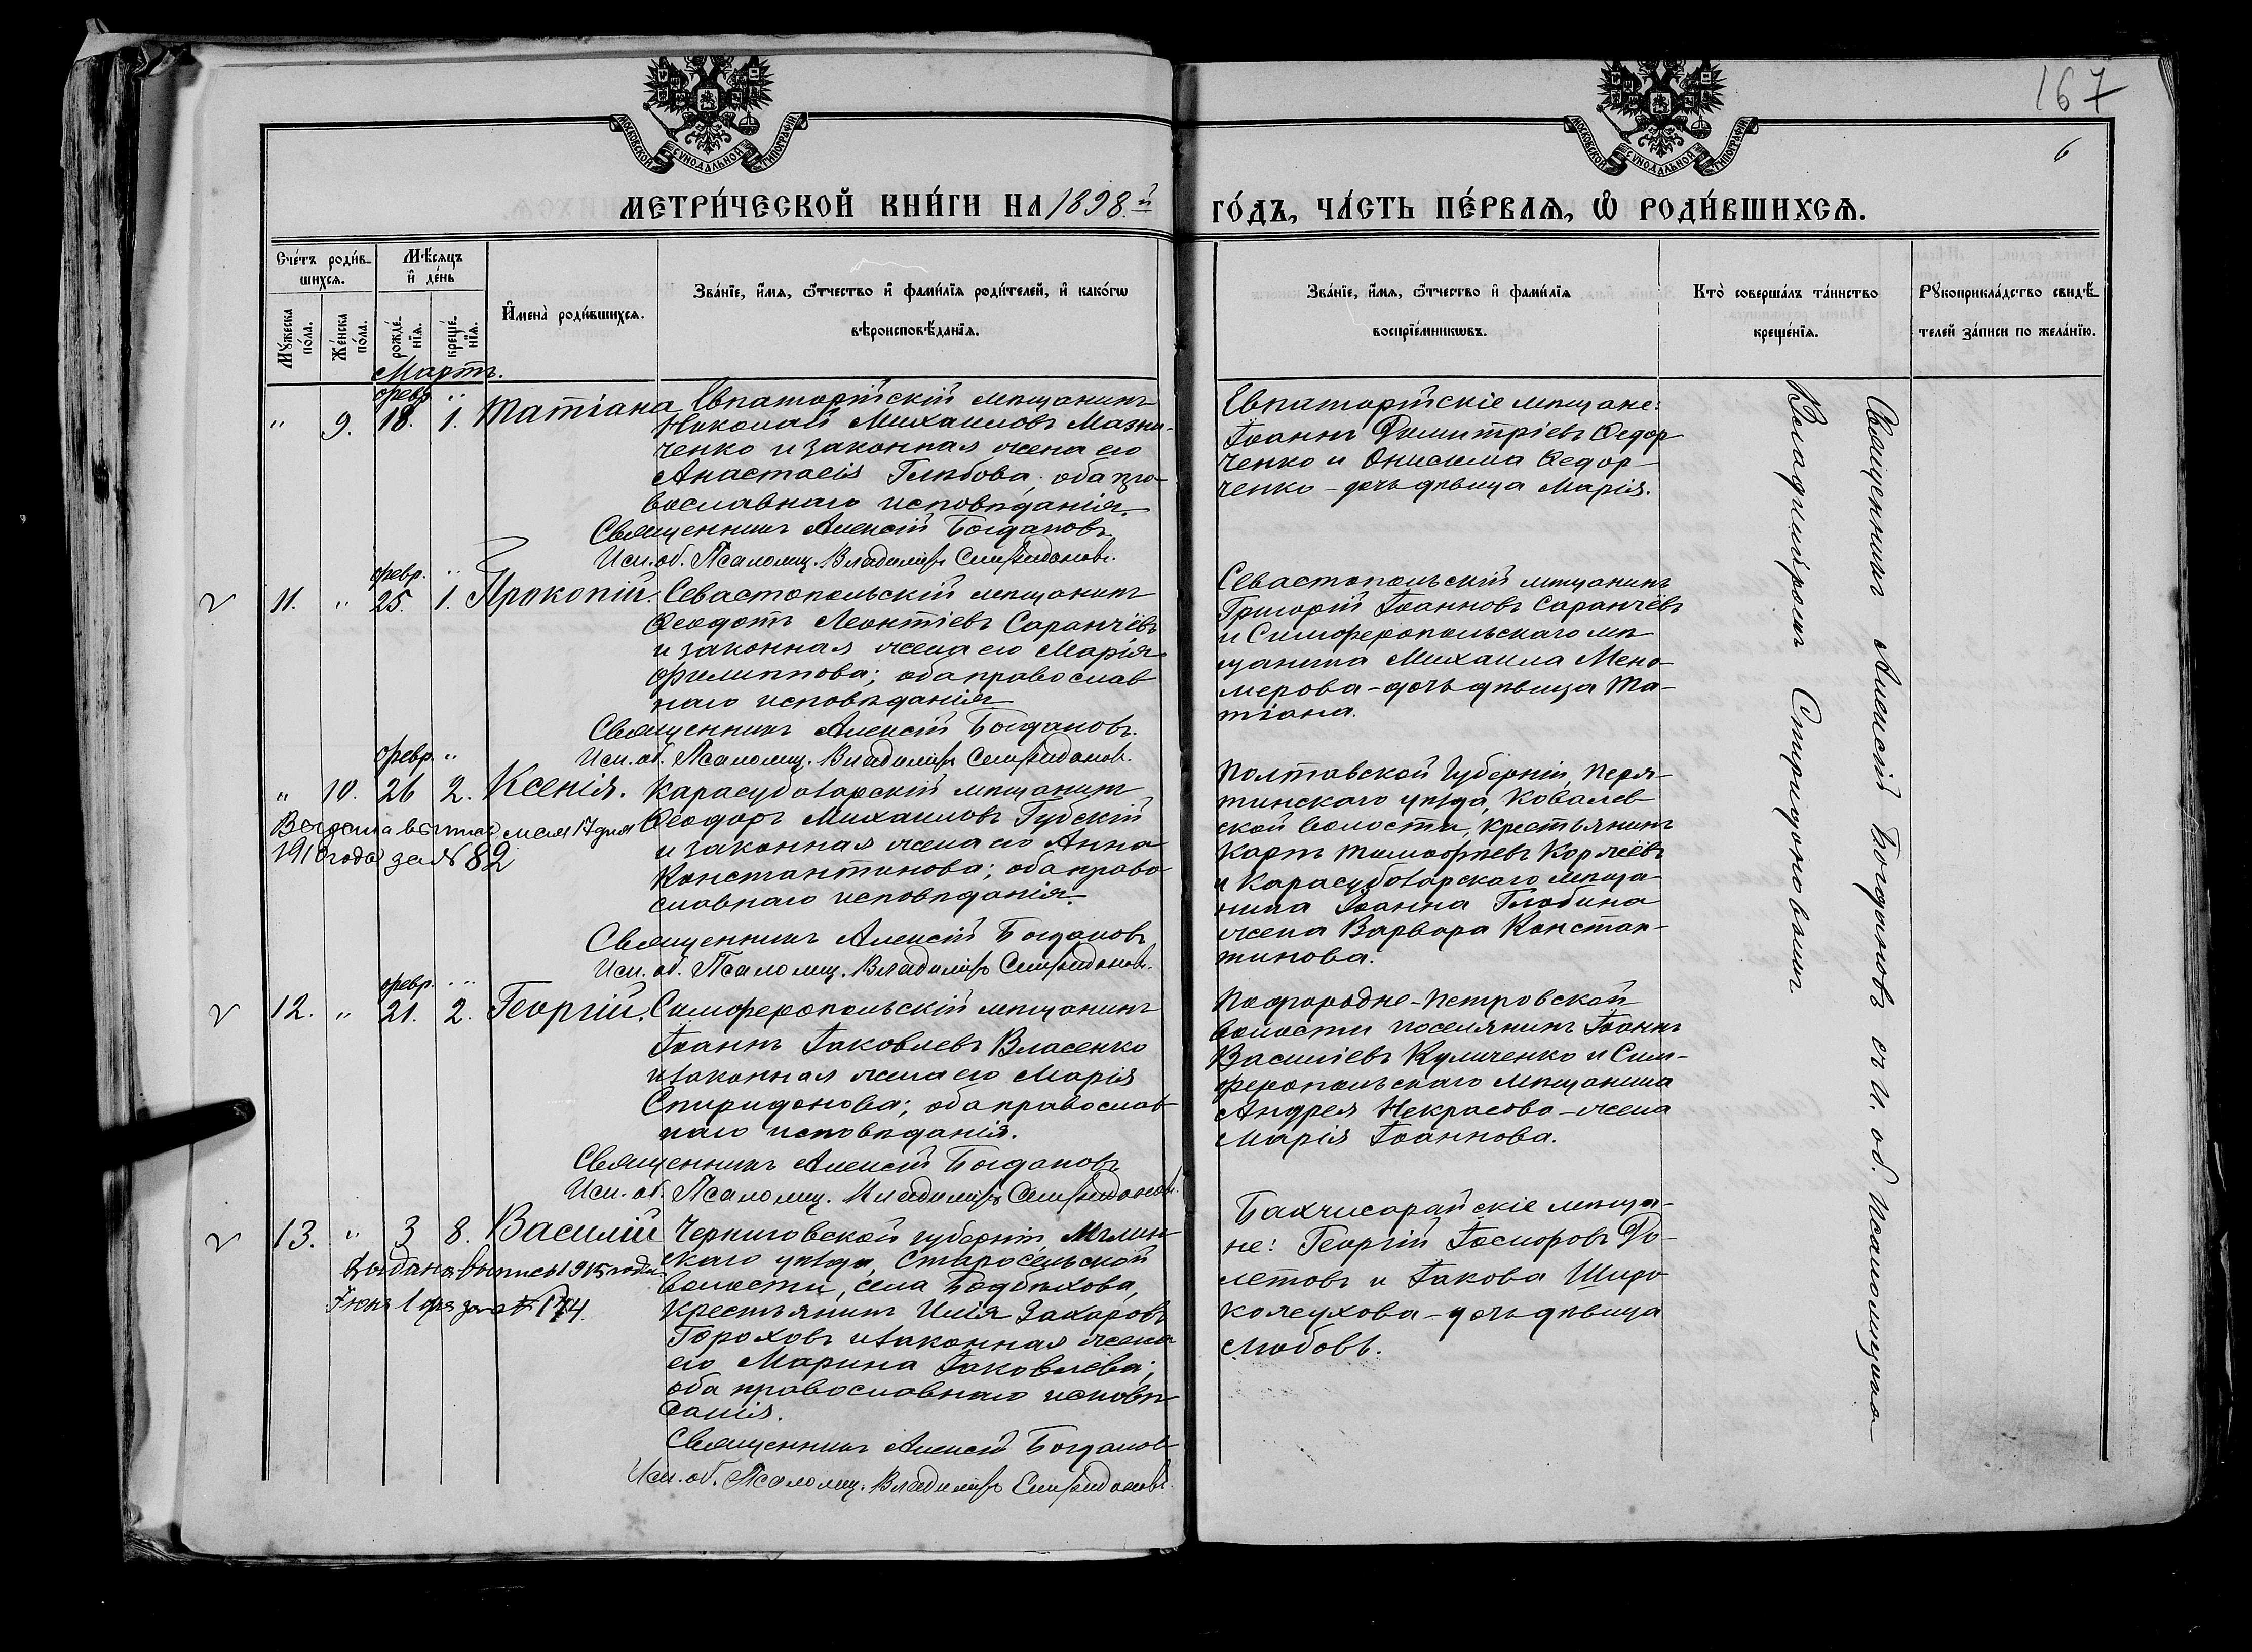 167
6
МОСКОВСКОЙ СѴНОДАЛЬНОЙ ТИПОГРАФІИ
МОСКОВСКОЙ СѴНОДАЛЬНОЙ ТИПОГРАФІИ
МЕТРИ́ЧЕСКОЙ КНИ́ГИ НА 1898.й
ГО́ДЪ, ЧА́СТЬ ПЕ́РВАѦ, Ѽ РОДИ́ВШИХСѦ.
Сче́тъ роди́в-
шихсѧ.
Мѣ́сѧцъ
и҆ де́нь
Мꙋ́жеска по́ла.
Же́нска по́ла.
рожде́-
нїѧ.
креще́-
нїѧ.
И҆мена̀ роди́вшихсѧ.
Зва́нїе, и҆́мѧ, ѻ҆́тчество и҆ фами́лїѧ роди́телей, и҆ како́гѡ
вѣроисповѣ́данїѧ.
Зва́нїе, и҆́мѧ, ѻ҆́тчество и҆ фами́лїѧ
воспрїе́мникѡвъ.
Кто̀ соверша́лъ та́инство
креще́нїѧ.
Рꙋкоприкла́дство свидѣ́-
телей за́писи по жела́нїю.
Мартъ.
февр. "
" 9. 18. 1. Татіана
Евпаторійскій мѣщанинъ
Николай Михаиловъ Мазни-
ченко и законная жена его
Анастасія Глѣбова; оба пра-
вославнаго исповѣданія.
Священникъ Алексій Богдановъ
Исп. об. Псаломщ. Владиміръ Спиридоновъ.
Евпаторійскіе мѣщане:
Іоаннъ Димитріевъ Ѳедор-
ченко и Онисима Ѳедор-
ченко - дочь дѣвица Марія.
февр. "
11. " 25. 1. Прокопій.
Севастопольскій мѣщанинъ
Ѳеодотъ Леонтіевъ Саранчёвъ
и законная жена его Марія
Филиппова; оба православ
наго исповѣданія
Священникъ Алексій Богдановъ.
Исп. об. Псаломщ. Владиміръ Спиридоновъ.
Севастопольскій мѣщанинъ
Григорій Іоанновъ Саранчёвъ
и Симферопольскаго мѣ
щанина Михаила Мено-
мерова - дочь дѣвица Та-
тіана.
февр. "
" 10. 26 2. Ксенія.
1910 года за № 82
Карасубазарскій мѣщанинъ
Ѳеодоръ Михаиловъ Губскій
и законная жена его Анна
Константинова; оба право
славнаго исповѣданія.
Священникъ Алексій Богдановъ
Исп. об. Псаломщ. Владиміръ Спиридоновъ.
Полтавской Губерніи, Перя-
тинскаго уѣзда, Ковалев
ской волости, крестьянинъ
Карпъ Тимофѣевъ Коржёвъ
и Карасубазарскаго мѣща-
нина Іоанна Глобина
жена Варвара Констан-
тинова.
февр. "
12. " 21. 2. Георгій.
Симферопольскій мѣщанинъ
Іоаннъ Іаковлевъ Власенко
и законная жена его Марія
Спиридонова; оба православ
наго исповѣданія.
Священникъ Алексій Богдановъ
Исп. об. Псаломщ. Владиміръ Спиридоновъ.
Подгородне-Петровской
волости поселянинъ Іоаннъ
Василіевъ Куличенко и Сим-
феропольскаго мѣщанина
Андрея Некрасова - жена
Марія Іоаннова.
13. " 3 8. Василій
Выдана выпись 1915 года
Іюня 1 дня за № 174.
Черниговской губерніи Мглин-
скаго уѣзда, Старосельской
волости, села
крестьянинъ Илія Захаровъ
Гороховъ и законная жена
его Марина Іаковлева;
оба православнаго исповѣ
данія.
Священникъ Алексій Богдановъ
Исп. об. Псаломщ. Владиміръ Спиридоновъ.
Бахчисарайскіе мѣща-
не: Георгій Іосифовъ До-
летовъ и Іакова Широ
колеухова - дочь дѣвица
Любовь.
Священникъ Алексій Богдановъ съ И. об. Псаломщика
Владиміромъ Спиридоновымъ